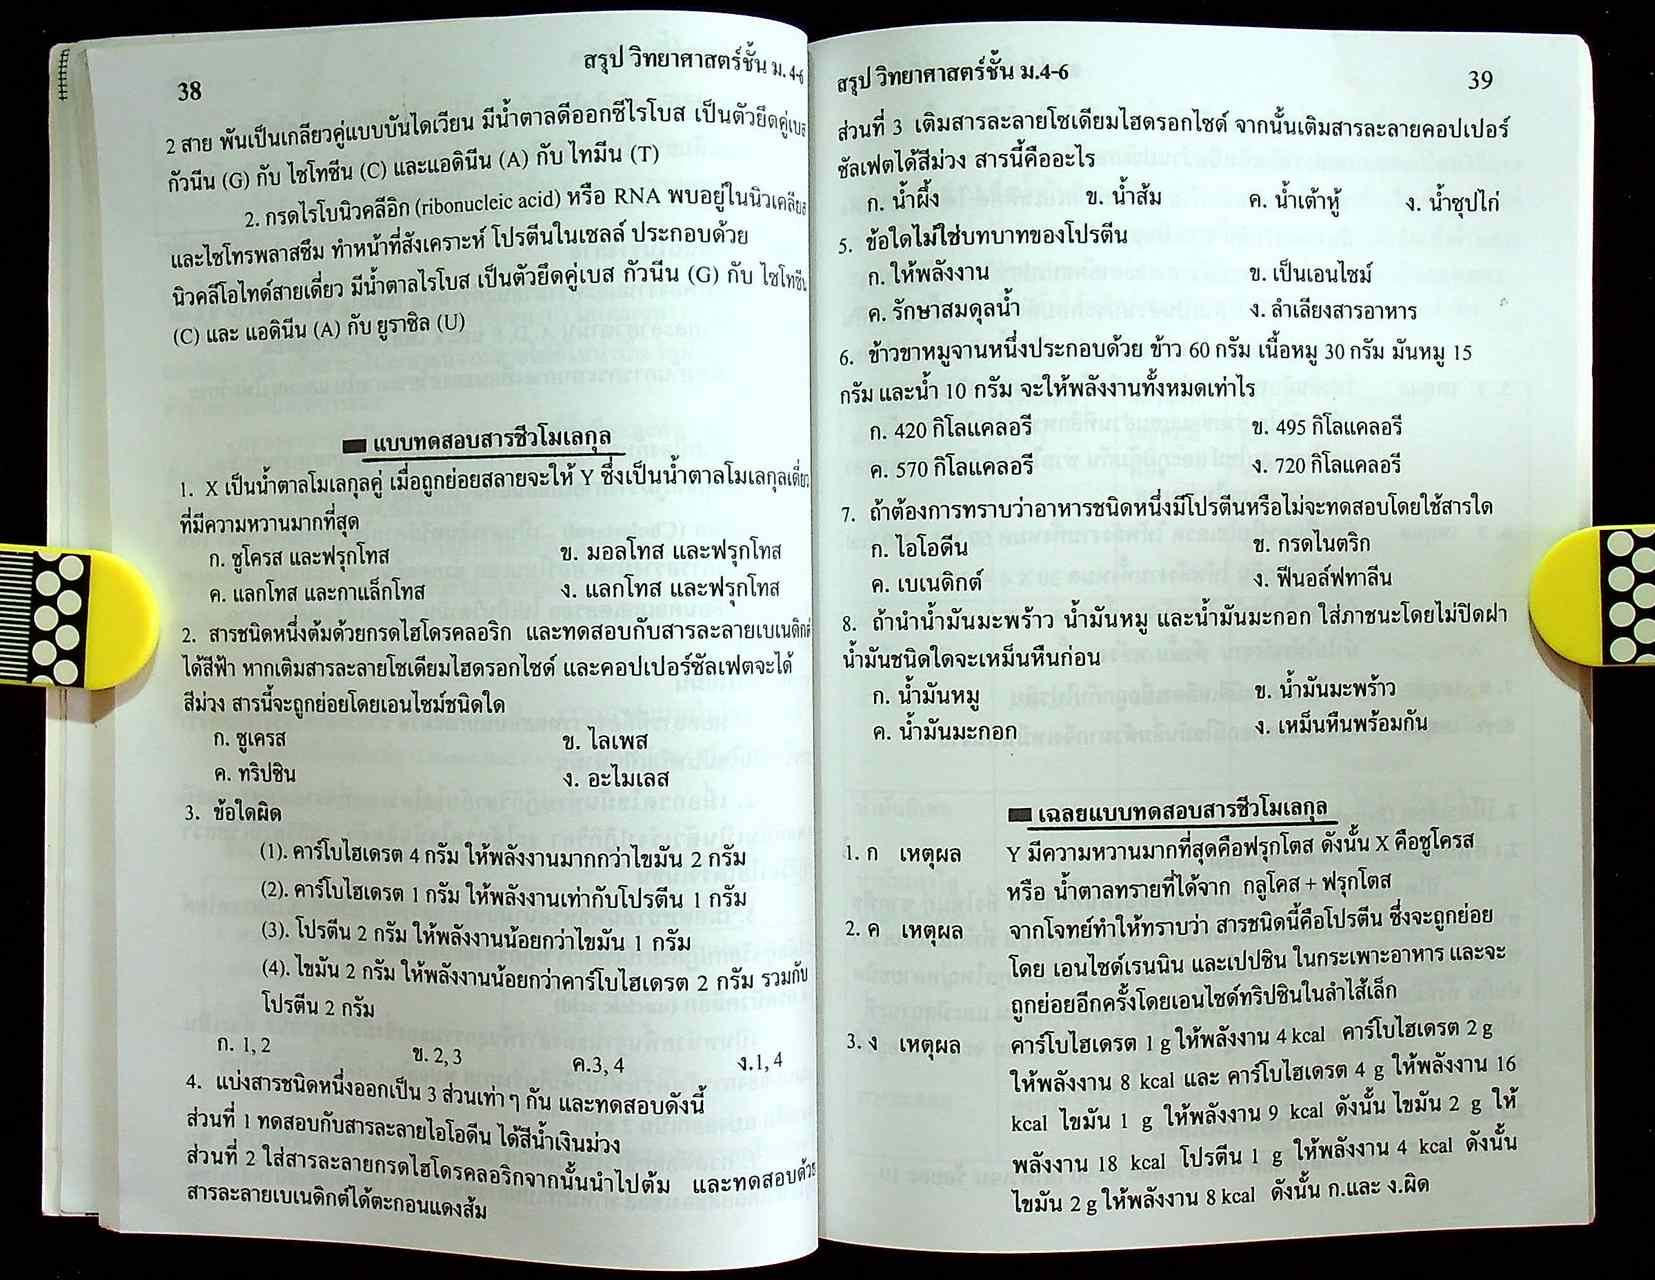 38
สรุป วิทยาศาสตร์ชั้น ม. 4-6
2 สาย พันเป็นเกลียวคู่แบบบันไดเวียน มีน้ำตาลดีออกซีไรโบส เป็นตัวยึดคู่เบส
กัวนีน (G) กับ ไซโทซีน (C) และแอดินีน (A) กับ ไทมีน (T)
2. กรดไรโบนิวคลีอิก (ribonucleic acid) หรือ RNA พบอยู่ในนิวเคลียส
และไซโทรพลาสซึม ทำหน้าที่สังเคราะห์ โปรตีนในเซลล์ ประกอบด้วย
นิวคลีโอไทด์สายเดี่ยว มีน้ำตาลไรโบส เป็นตัวยึดคู่เบส กัวนีน (G) กับ ไซโทซีน
(C) และ แอดินีน (A) กับ ยูราซิล (U)
แบบทดสอบสารชีวโมเลกุล
1. X เป็นน้ำตาลโมเลกุลคู่ เมื่อถูกย่อยสลายจะให้ Y ซึ่งเป็นน้ำตาลโมเลกุลเดี่ยว
ที่มีความหวานมากที่สุด
ก. ซูโครส และฟรุกโทส ข. มอลโทส และฟรุกโทส
ค. แลกโทส และกาแล็กโทส ง. แลกโทส และฟรุกโทส
2. สารชนิดหนึ่งต้มด้วยกรดไฮโดรคลอริก และทดสอบกับสารละลายเบเนดิกต์
ได้สีฟ้า หากเติมสารละลายโซเดียมไฮดรอกไซด์ และคอปเปอร์ซัลเฟตจะได้
สีม่วง สารนี้จะถูกย่อยโดยเอนไซม์ชนิดใด
ก. ซูเครส ข. ไลเพส
ค. ทริปซิน ง. อะไมเลส
3. ข้อใดผิด
(1). คาร์โบไฮเดรต 4 กรัม ให้พลังงานมากกว่าไขมัน 2 กรัม
(2). คาร์โบไฮเดรต 1 กรัม ให้พลังงานเท่ากับโปรตีน 1 กรัม
(3). โปรตีน 2 กรัม ให้พลังงานน้อยกว่าไขมัน 1 กรัม
(4). ไขมัน 2 กรัม ให้พลังงานน้อยกว่าคาร์โบไฮเดรต 2 กรัม รวมกับ
โปรตีน 2 กรัม
ก. 1, 2 ข. 2, 3 ค.3, 4 ง.1, 4
4. แบ่งสารชนิดหนึ่งออกเป็น 3 ส่วนเท่า ๆ กัน และทดสอบดังนี้
ส่วนที่ 1 ทดสอบกับสารละลายไอโอดีน ได้สีน้ำเงินม่วง
ส่วนที่ 2 ใส่สารละลายกรดไฮโดรคลอริกจากนั้นนำไปต้ม และทดสอบด้วย
สารละลายเบเนดิกต์ได้ตะกอนแดงส้ม
สรุป วิทยาศาสตร์ชั้น ม.4-6
39
ส่วนที่ 3 เติมสารละลายโซเดียมไฮดรอกไซด์ จากนั้นเติมสารละลายคอปเปอร์
ซัลเฟตได้สีม่วง สารนี้คืออะไร
ก. น้ำผึ้ง ข. น้ำส้ม ค. น้ำเต้าหู้ ง. น้ำซุปไก่
5. ข้อใดไม่ใช่บทบาทของโปรตีน
ก. ให้พลังงาน ข. เป็นเอนไซม์
ค. รักษาสมดุลน้ำ ง. ลำเลียงสารอาหาร
6. ข้าวขาหมูจานหนึ่งประกอบด้วย ข้าว 60 กรัม เนื้อหมู 30 กรัม มันหมู 15
กรัม และน้ำ 10 กรัม จะให้พลังงานทั้งหมดเท่าไร
ก. 420 กิโลแคลอรี ข. 495 กิโลแคลอรี
ค. 570 กิโลแคลอรี ง. 720 กิโลแคลอรี
7. ถ้าต้องการทราบว่าอาหารชนิดหนึ่งมีโปรตีนหรือไม่จะทดสอบโดยใช้สารใด
ก. ไอโอดีน ข. กรดไนตริก
ค. เบเนดิกต์ ง. ฟีนอล์ฟทาลีน
8. ถ้านำน้ำมันมะพร้าว น้ำมันหมู และน้ำมันมะกอก ใส่ภาชนะโดยไม่ปิดฝา
น้ำมันชนิดใดจะเหม็นหืนก่อน
ก. น้ำมันหมู ข. น้ำมันมะพร้าว
ค. น้ำมันมะกอก ง. เหม็นหืนพร้อมกัน
เฉลยแบบทดสอบสารชีวโมเลกุล
1. ก เหตุผล Y มีความหวานมากที่สุดคือฟรุกโตส ดังนั้น X คือซูโครส
หรือ น้ำตาลทรายที่ได้จาก กลูโคส + ฟรุกโตส
2. ค เหตุผล จากโจทย์ทำให้ทราบว่า สารชนิดนี้คือโปรตีน ซึ่งจะถูกย่อย
โดย เอนไซด์เรนนิน และเปปซิน ในกระเพาะอาหาร และจะ
ถูกย่อยอีกครั้งโดยเอนไซด์ทริปซินในลำไส้เล็ก
3. ง เหตุผล คาร์โบไฮเดรต 1 g ให้พลังงาน 4 kcal คาร์โบไฮเดรต 2 g
ให้พลังงาน 8 kcal และ คาร์โบไฮเดรต 4 g ให้พลังงาน 16
kcal ไขมัน 1 g ให้พลังงาน 9 kcal ดังนั้น ไขมัน 2 g ให้
พลังงาน 18 kcal โปรตีน 1 g ให้พลังงาน 4 kcal ดังนั้น
ไขมัน 2 g ให้พลังงาน 8 kcal ดังนั้น ก.และ ง.ผิด